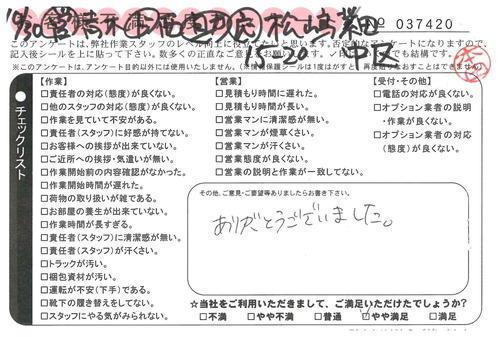 № 037420
15-20 中区
このアンケートは、弊社作業スタッフのレベル向上に役立てたいと思います。否定的なアンケートになりますので、
記入後シールを上に貼って下さい。
※このアンケートは、アンケート目的以外には使用いたしません。
チェックリスト
【作業】
□責任者の対応(態度)が良くない。
□他のスタッフの対応(態度)が良くない。
□作業を見ていて不安がある。
□責任者(スタッフ)に好感が持てない。
□お客様への挨拶が出来ていない。
□ご近所への挨拶・気遣いが無い。
□作業開始前の内容確認がなかった。
□作業開始時間が遅れた。
□荷物の取り扱いが雑である。
□お部屋の養生が出来ていない。
□作業時間が長すぎる。
□責任者(スタッフ)に清潔感が無い。
□責任者(スタッフ)が汗くさい。
□トラックが汚い。
□梱包資材が汚い。
□運転が不安(下手)である。
□靴下の履き替えをしてない。
□スタッフにやる気がみられない。
【営業】
□見積もり時間に遅れた。
□見積もり時間が長い。
□営業マンに清潔感が無い。
□営業マンが煙草くさい。
□営業マンが汗くさい。
□営業態度が良くない。
□営業の説明と作業が一致してない。
【受付・その他】
□電話の対応が良くない。
□オプション業者の説明
・作業が良くない。
□オプション業者の対応
(態度)が良くない。
その他、ご意見・ご要望等ありましたらお書き下さい。
ありがとうございました。
☆当社をご利用いただきまして、ご満足いただけたでしょうか?
□不満 □やや不満 □普通 □やや満足 □満足